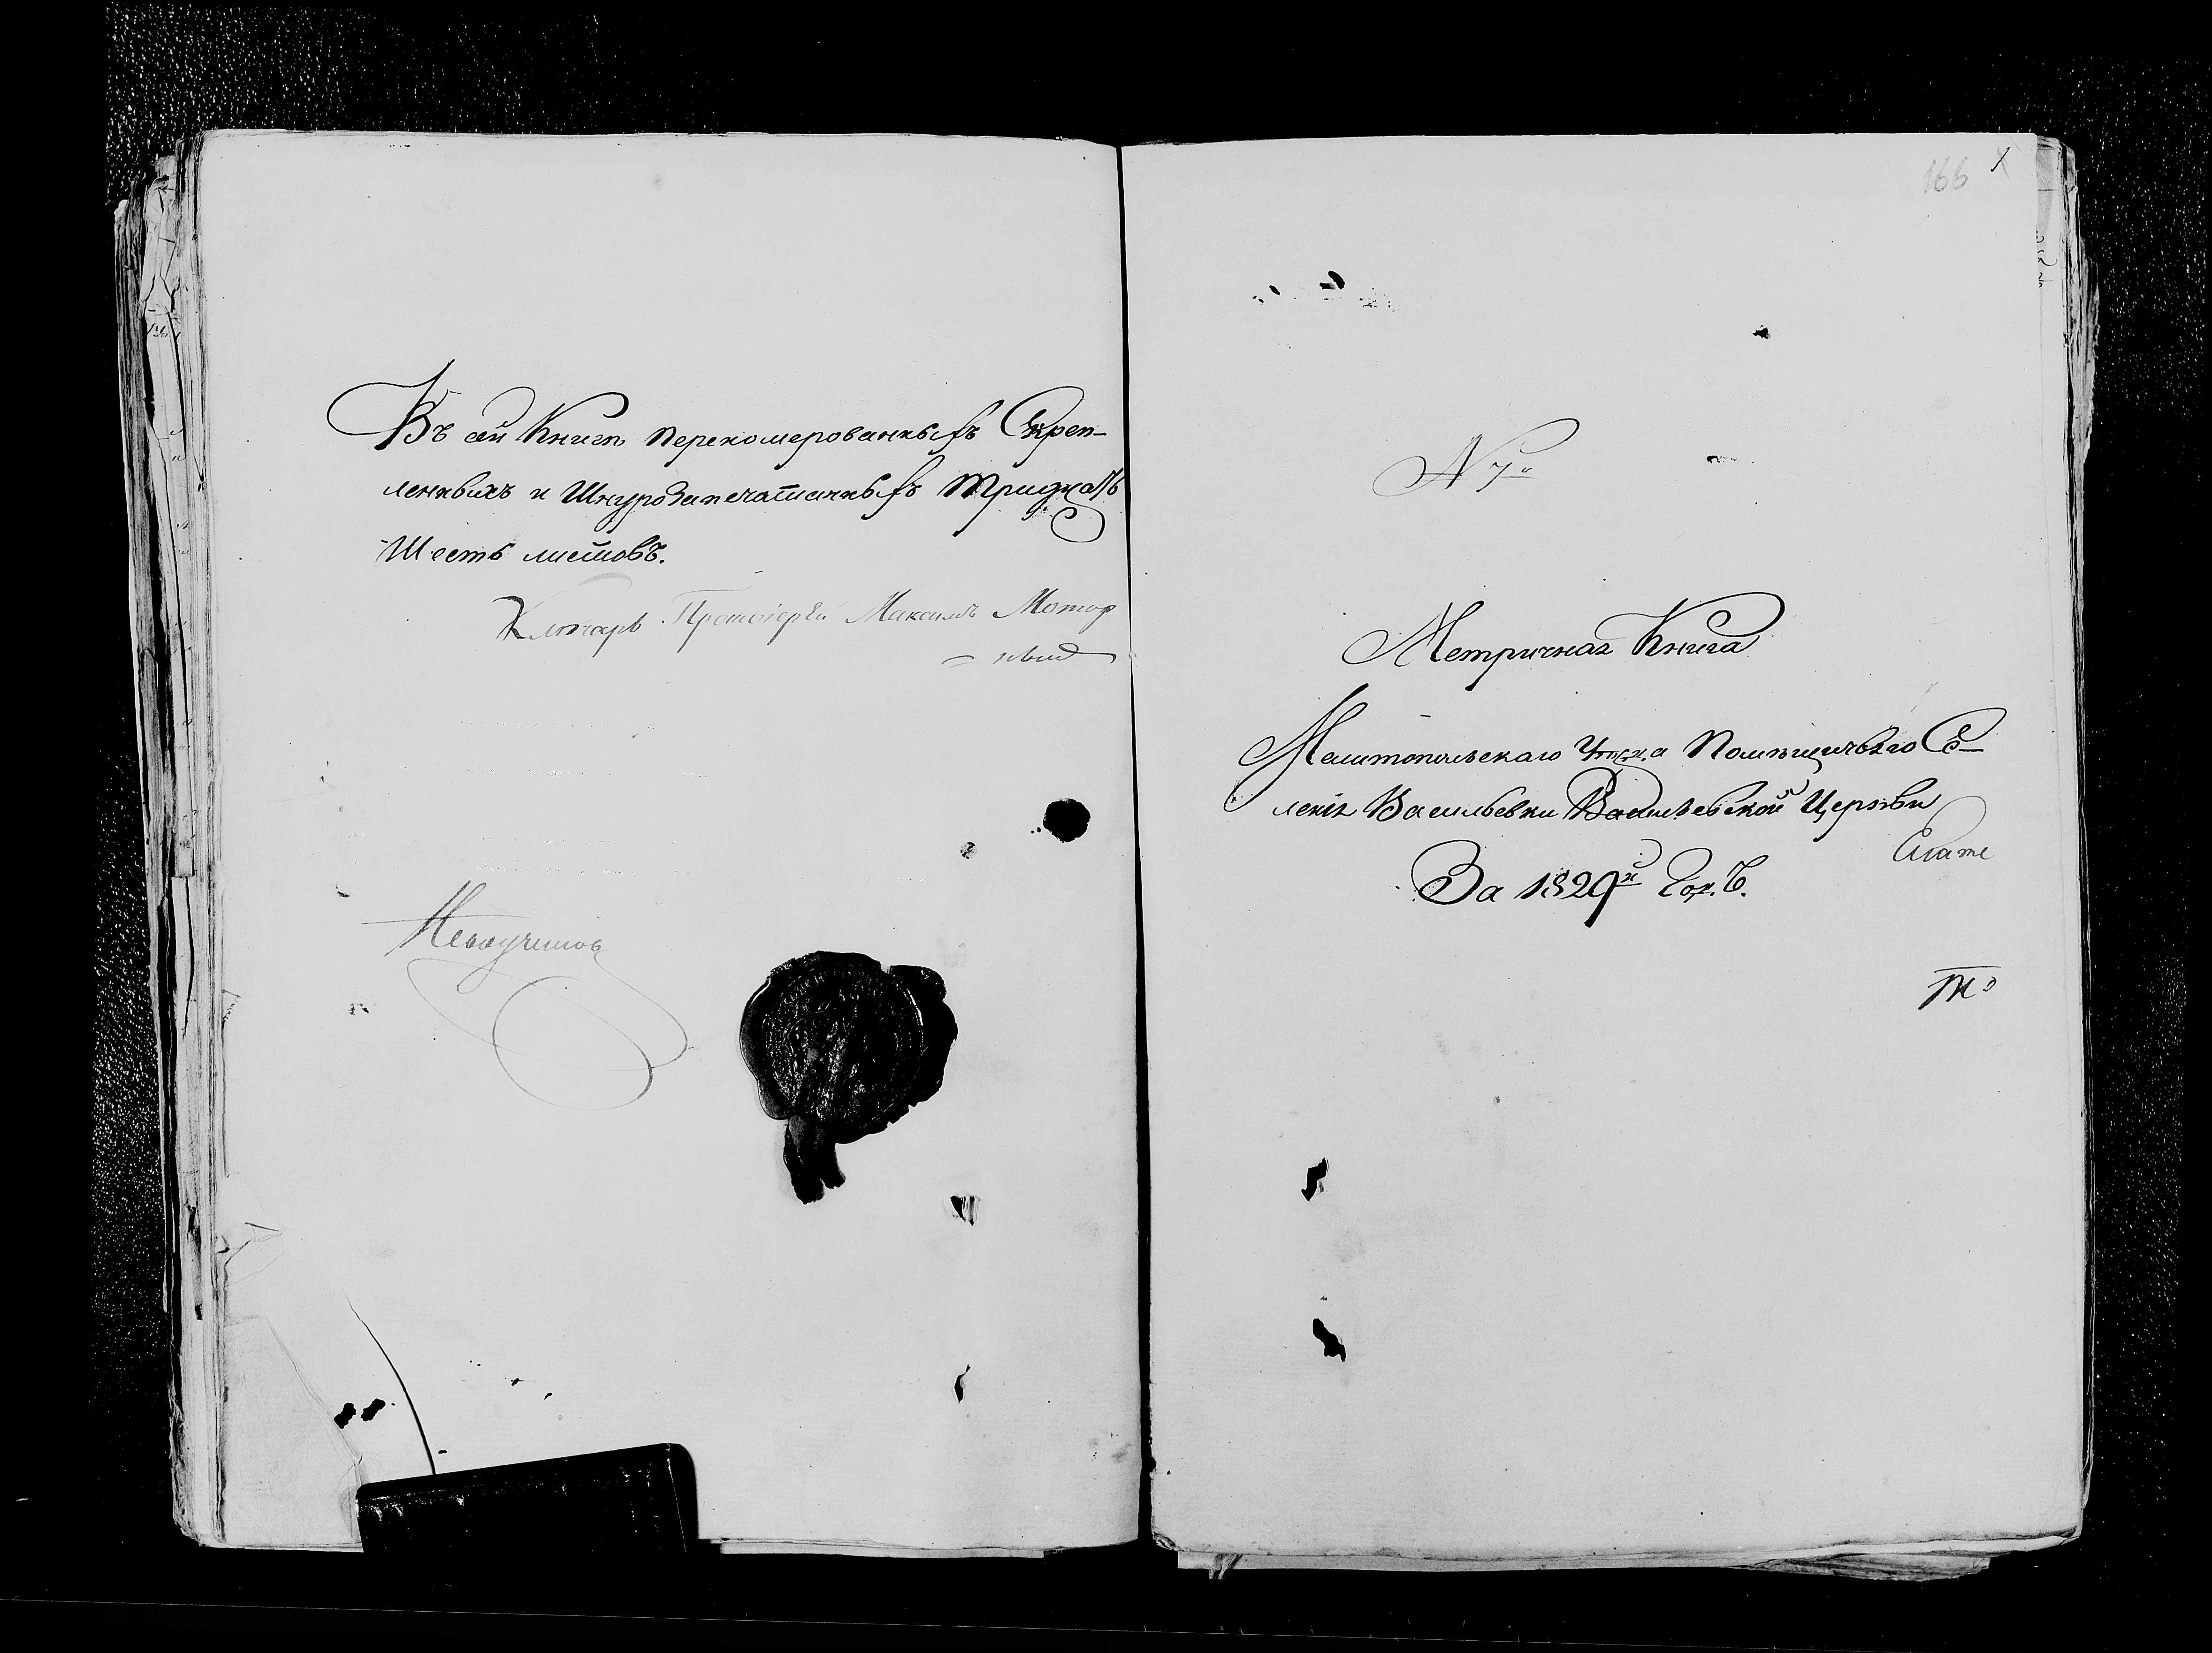 Въ сей Книгѣ перекомерованныхъ Скреп-
ленныхъ и Шнурозапечатанныхъ тридцать
Шесть листовъ.
Ключарь Протоіерей Максимъ Мотор
= ный
166 1
N 7й
Метричная Книга
Мелитопольскаго Уѣзда Помѣщичьяго Се-
ленія Васильевки Васильевской Церкви
За 1829й Годъ.